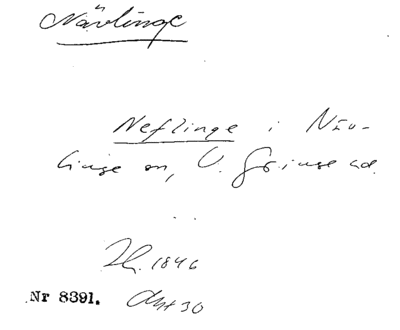 Nävlinge
Neflinge i Näv-
linge sn, V. Göinge hd.
1846
Nr 8391. 30